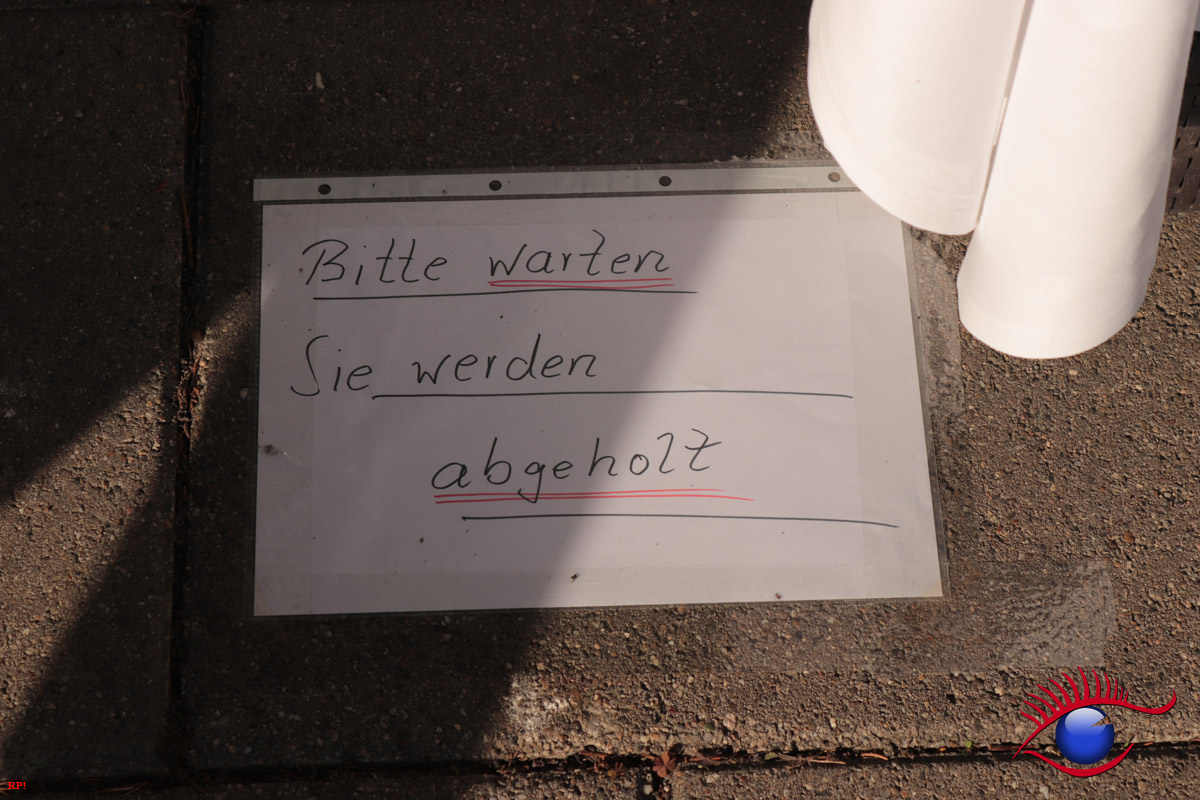 Bitte warten
Sie werden
abgeholt
RP!